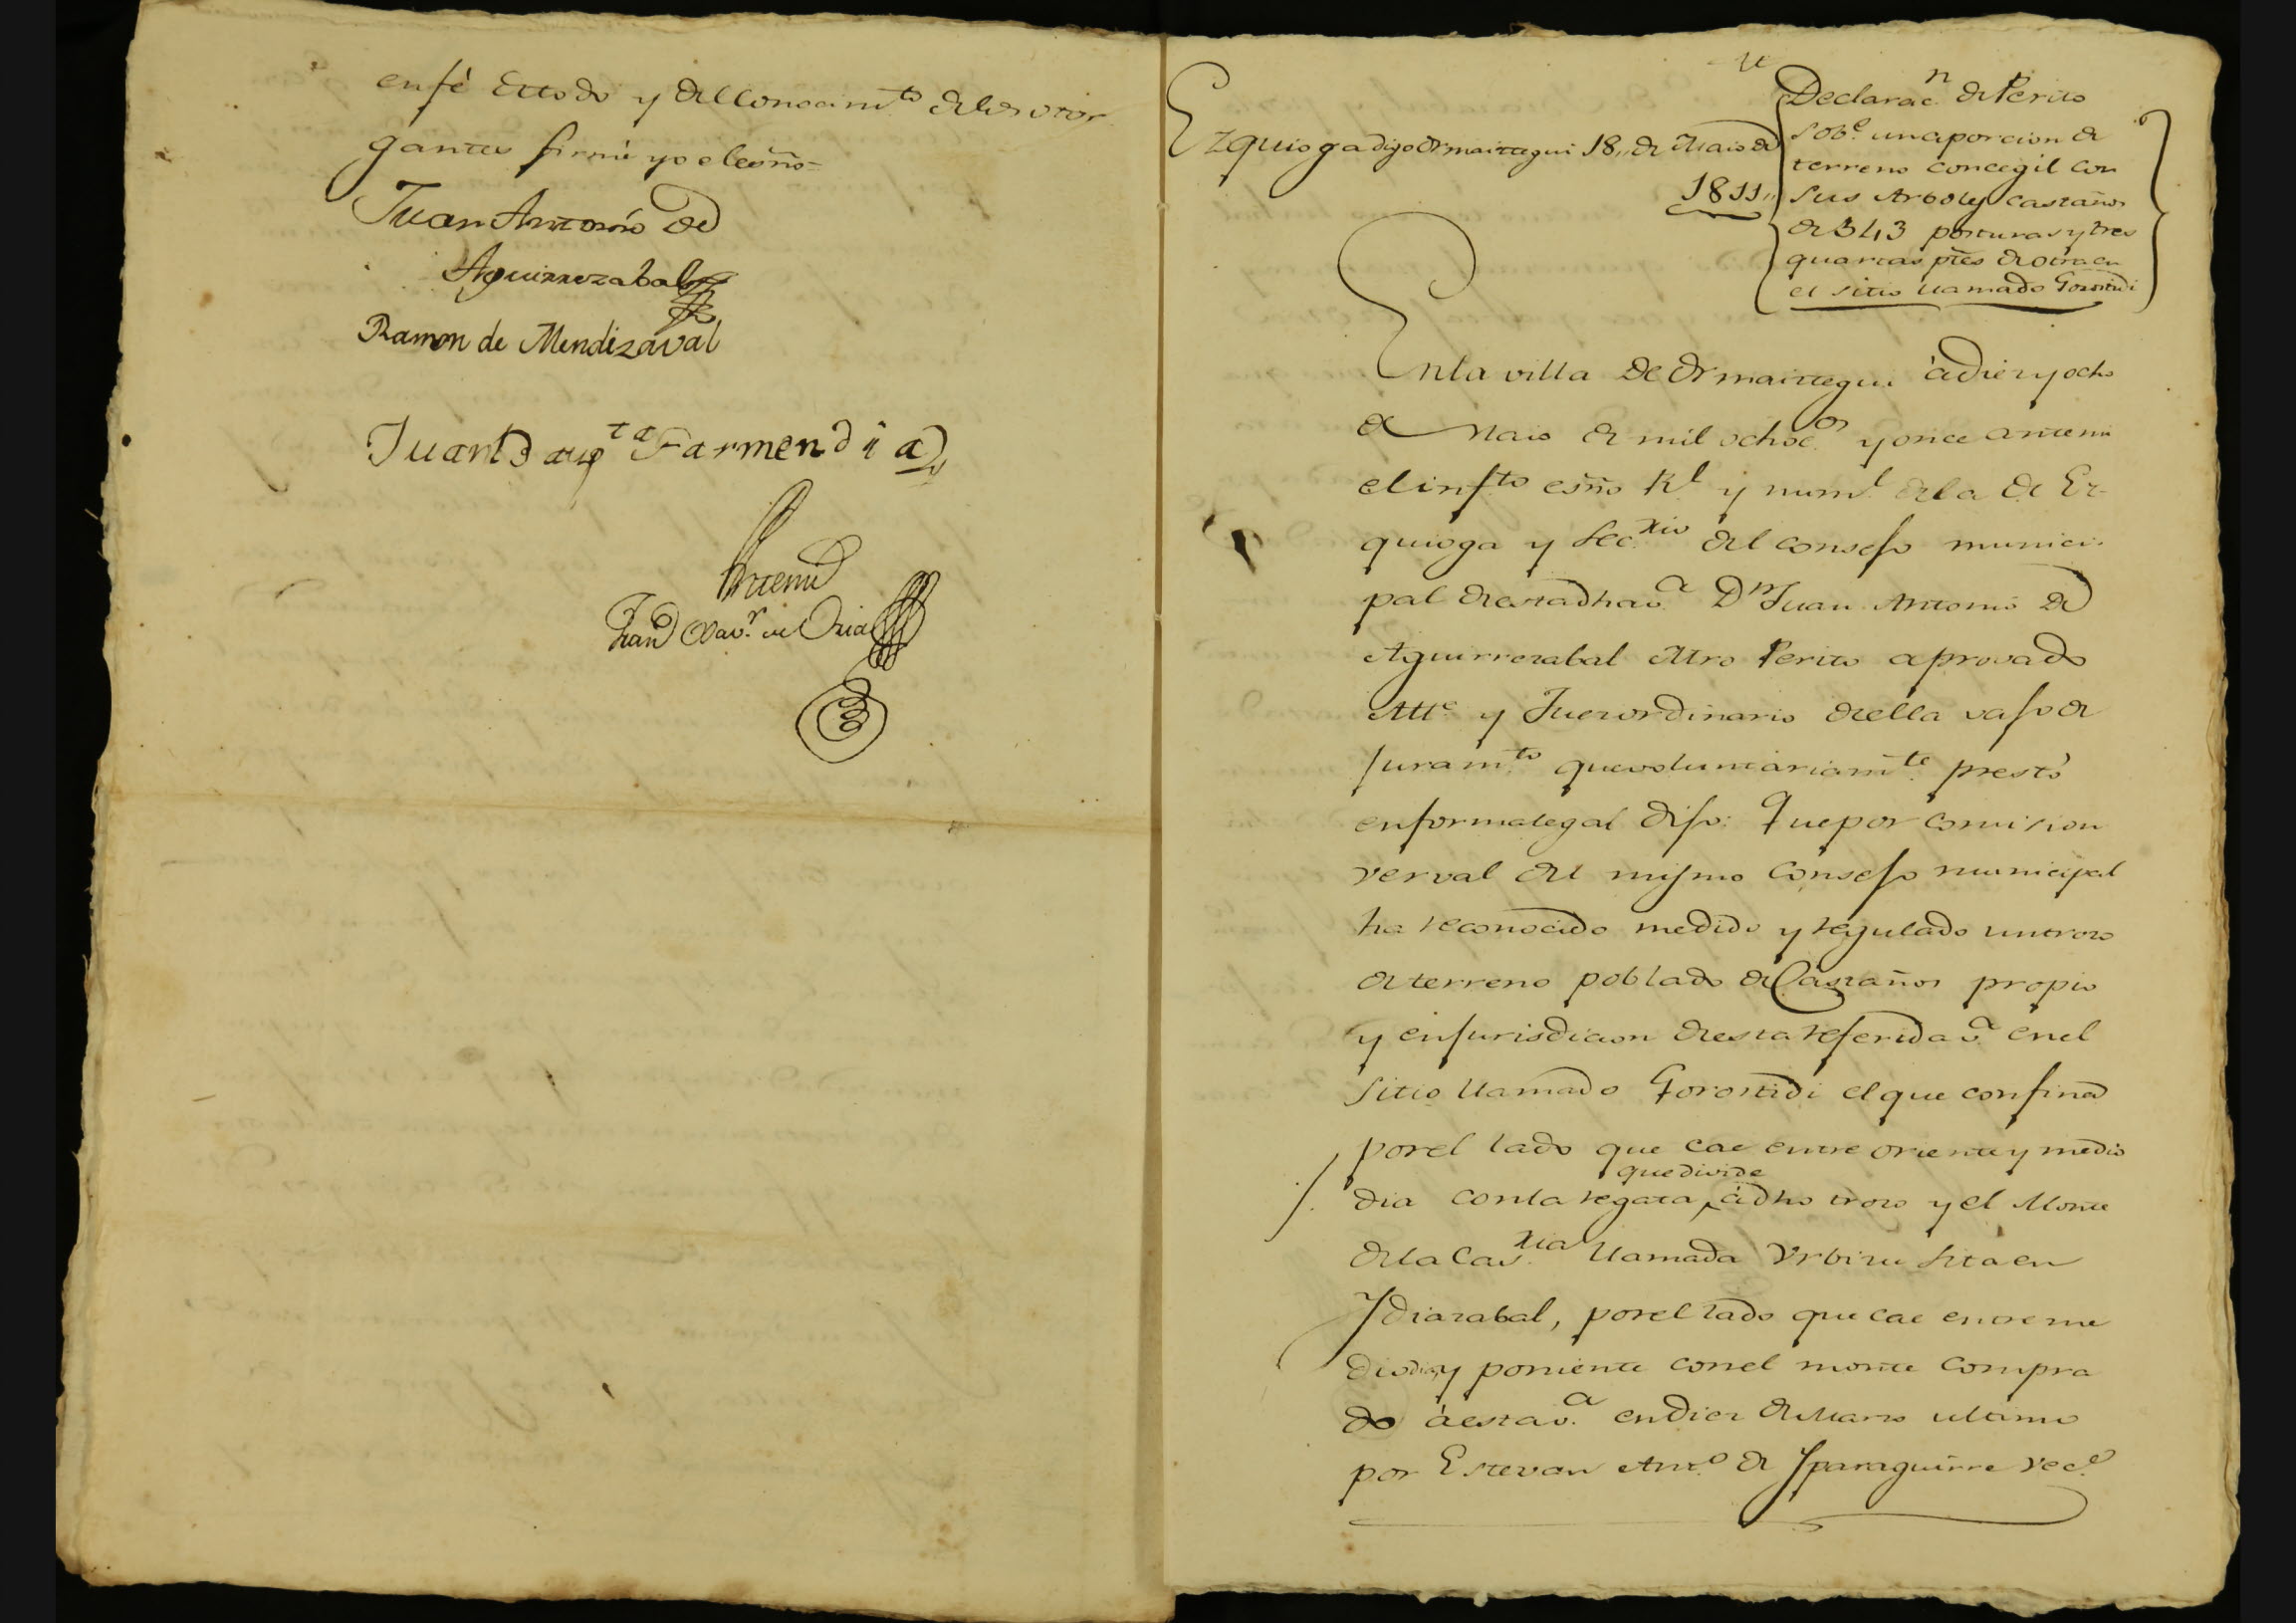 en fè de todo y del conocim.to de los otor
gantes firmé yo el esño=
Juan Antonio de
Aguirrezabal
Ramon de Mendizaval
Juan Bap.ta Garmendia
Ante mi
Fran.co Xav.r de Oria
Ezquioga digo Ormaiztegui 18,, de Maio de
1811,,
Declarac.n de Perito
sob.e una porcion de
terreno concegil con
sus Arboles castaños
de 343 posturas y tres
quartas ptes de otra en
el sitio llamado Gorostidi
En la villa de Ormaiztegui à diez y ocho
de Maio de mil ochoc.os y once ante mi
el infto esño R.l y num.l de la de Ez-
quioga y Sec.rio del consejo munici-
pal de esta dha v.a D.n Juan Antonio de
Aguirrezabal Mro Perito aprovado
Alle y Juez ordinario de ella vajo de
juram.to que voluntariam.te prestò
en forma legal dijo: Que por comision
verval del mismo Consejo municipal
ha reconocido medido y regulado un trozo
de terreno poblado de Castaños propio
y en jurisdicion de esta referida v.a en el
sitio llamado Gorostidi el que confina
por el lado que cae entre oriente y medio
que divide
dia con la regata à dho trozo y el Monte
de la Cas.ria llamada Urbizu sita en
Ydiazabal, por el lado que cae entre me
diodia y poniente con el monte compra
do à esta v.a en diez de Marzo ultimo
por Estevan Ant.o de Yparaguirre vec.o